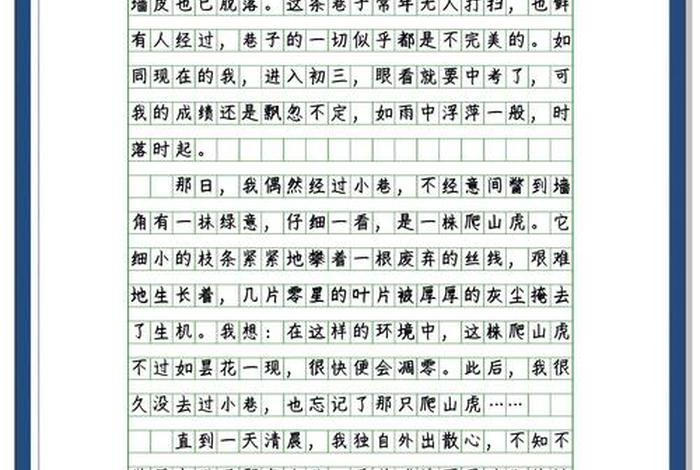 墙皮也已脱落。这条巷子常年无人打扫，也鲜
有人经过，巷子的一切似乎都是不完美的。如
同现在的我，进入初三，眼看就要中考了，可
我的成绩还是飘忽不定，如雨中浮萍一般，时
落时起。
那日，我偶然经过小巷，不经意间瞥到墙
角有一抹绿意，仔细一看，是一株爬山虎。它
细小的枝条紧紧地攀着一根废弃的丝线，艰难
地生长着，几片零星的叶片被厚厚的灰尘掩去
了生机。我想：在这样的环境中，这株爬山虎
不过如昙花一现，很快便会凋零。此后，我很
久没去过小巷，也忘记了那只爬山虎……
直到一天清晨，我独自外出散心，不知不